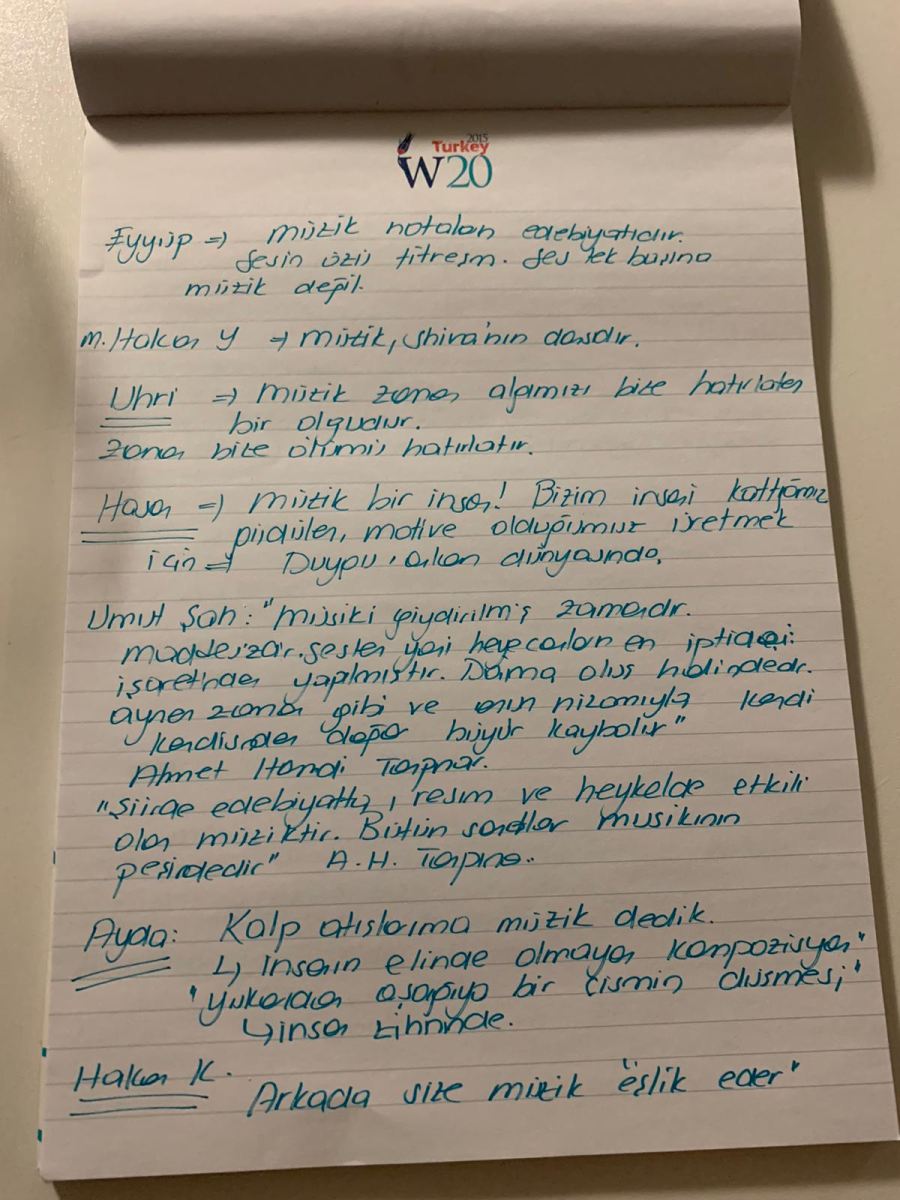 2015
Turkey
W20
Eyyüp => müzik notaları edebiyatıdır.
Sesin özü titreşm. Ses tek başına
müzik değil.
M. Hakan Y → müzik, shiva'nın dansıdır.
Uhri => Müzik zaman algımızı bize hatırlatan
bir olgudur.
Zaman bize ölümü hatırlatır.
Hasan => Müzik bir insan! Bizim insani
güdüler, motive olduğumuz üretmek
için => Duygu, dünyasında.
Umut Şah: "musiki giydirilmiş zamandır.
maddesizdir. sesten yani heyecanların en iptidai
işaretinden yapılmıştır. Daima oluş halindedir.
aynen zaman gibi ve onun nizamıyla kendi
kendisinden doğar büyür kaybolur"
Ahmet Hamdi Tanpınar.
"Şiirde edebiyatta, resim ve heykelde etkili
olan müziktir. Bütün sanatlar musikinin
peşindedir" A.H. Tanpına..
Ayda: Kalp atışlarıma müzik dedik.
↳ insanın elinde olmayan kompozisyon"
"yukarıdan aşağıya bir cismin düşmesi"
↳ insan zihninde.
Hakan K.
Arkada size müzik "eşlik eder"